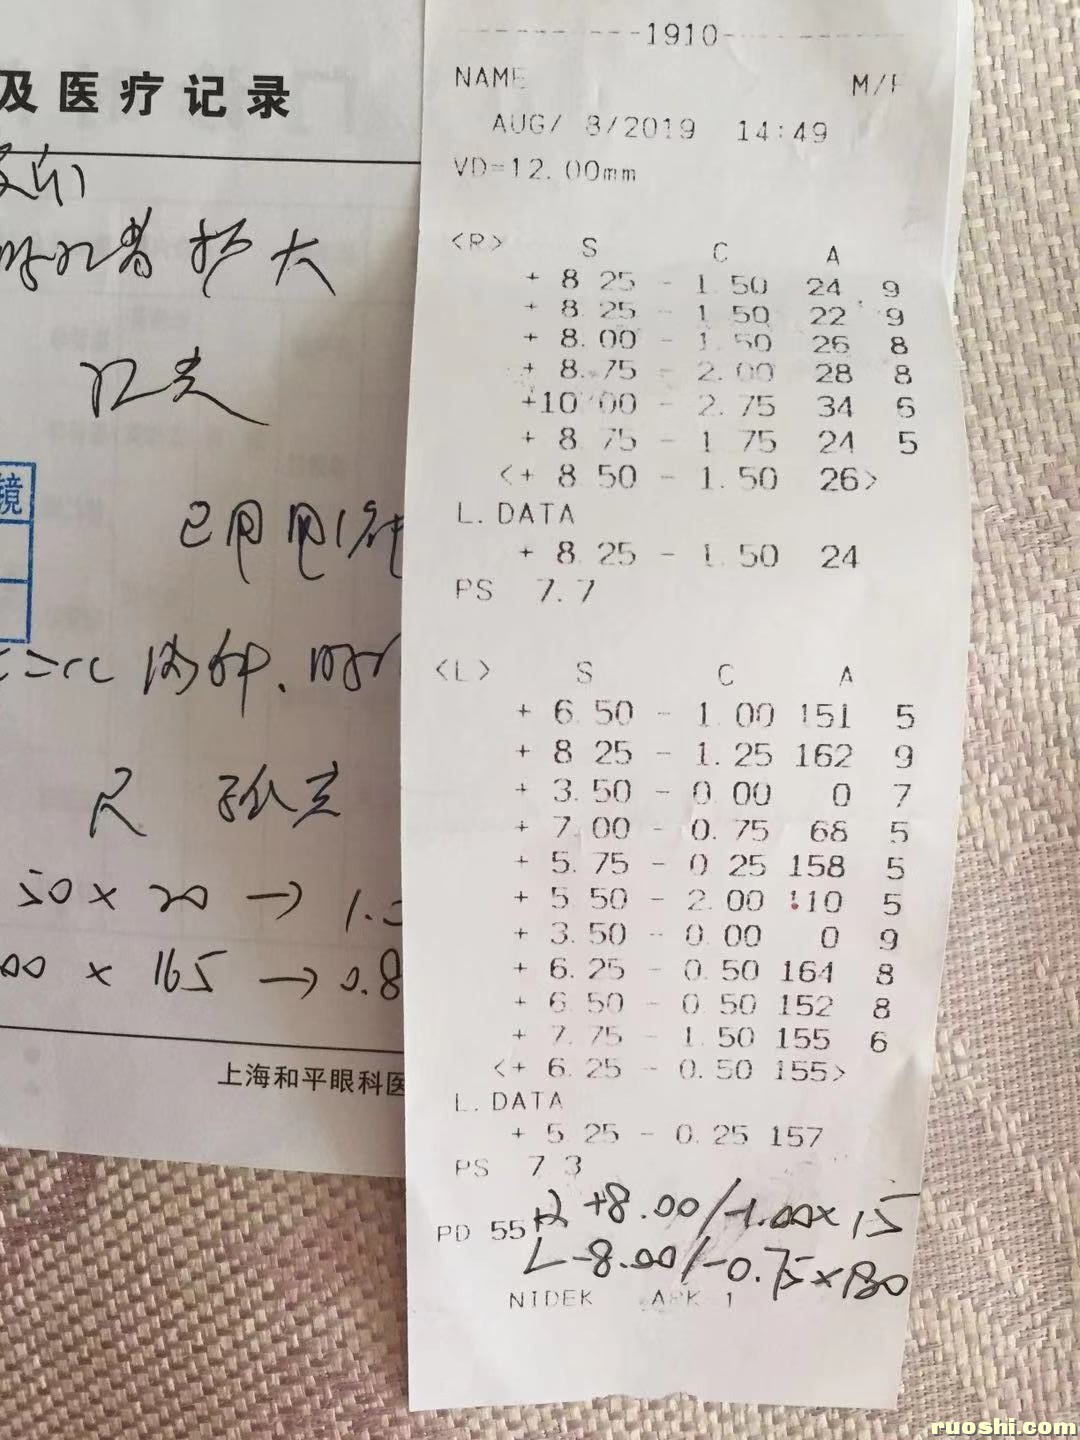 及医疗记录
扩大
验光
镜
尺 验光
50 x 20 → 1.
00 x 165 → 0.8
上海和平眼科医
1910
NAME M/F
AUG/ 8/2019 14:49
VD=12.00mm
<R> S C A
+ 8.25 - 1.50 24 9
+ 8.25 - 1.50 22 9
+ 8.00 - 1.50 26 8
+ 8.75 - 2.00 28 8
+10.00 - 2.75 34 6
+ 8.75 - 1.75 24 5
<+ 8.50 - 1.50 26>
L.DATA
+ 8.25 - 1.50 24
PS 7.7
<L> S C A
+ 6.50 - 1.00 151 5
+ 8.25 - 1.25 162 9
+ 3.50 - 0.00 0 7
+ 7.00 - 0.75 68 5
+ 5.75 - 0.25 158 5
+ 5.50 - 2.00 110 5
+ 3.50 - 0.00 0 9
+ 6.25 - 0.50 164 8
+ 6.50 - 0.50 152 8
+ 7.75 - 1.50 155 6
<+ 6.25 - 0.50 155>
L.DATA
+ 5.25 - 0.25 157
PS 7.3
R +8.00/-1.00x15
PD 55
L -8.00/-0.75x180
NIDEK ARK 1
ruoshi.com